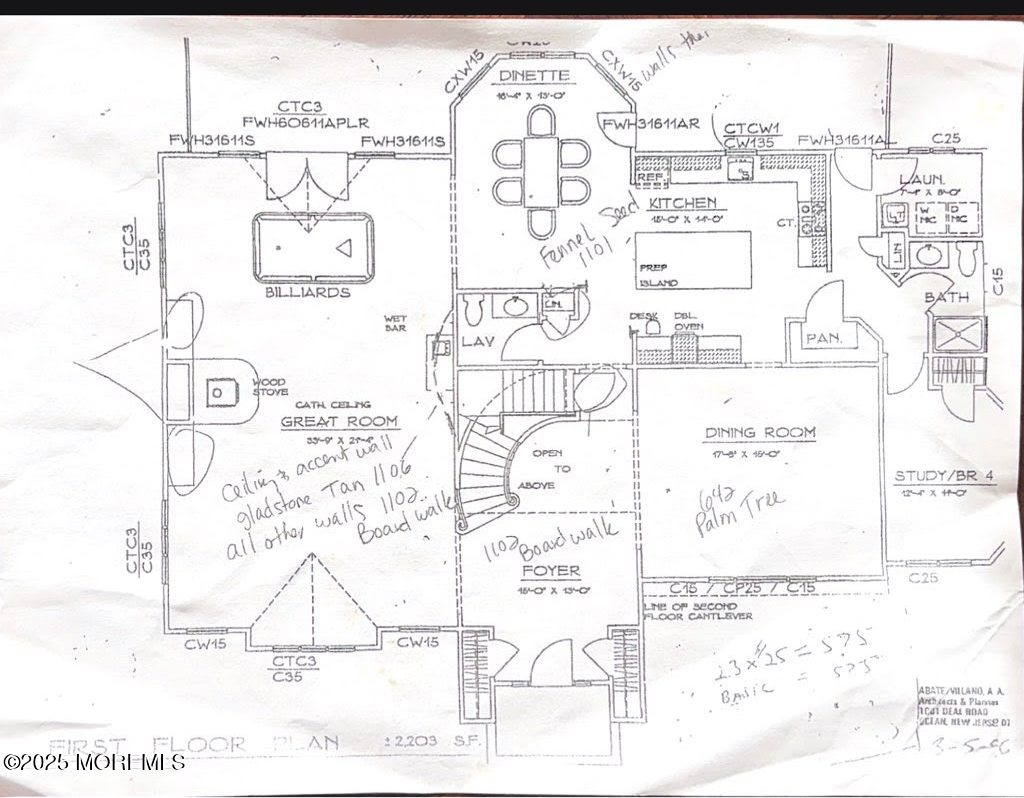 CW15
walls the
CXW15
DINETTE
16'-4" X 13'-0"
CXW15
CTC3
FWH60611APLR
FWH31611S
FWH31611S
FWH31611AR
CTCW1
CW135
FWH31611A
C25
REF.
S
LAUN.
7'-4" X 8'-0"
LT
W
MC
D
MC
KITCHEN
15'-0" X 14'-0"
CT.
LIN
CTC3
C35
Fennel Seed
1101
PREP
ISLAND
C15
BILLIARDS
LIN.
BATH
WET
BAR
LAV
DESK
DBL.
OVEN
PAN.
WOOD
STOVE
CATH. CEILING
GREAT ROOM
Ceiling & accent wall
gladstone Tan 1106
all other walls 1102
Boardwalk
OPEN
TO
ABOVE
DINING ROOM
17'-8" X 15'-0"
642
Palm Tree
STUDY/BR 4
12'-4" X 11'-0"
CTC3
C35
1102 Boardwalk
FOYER
15'-0" X 13'-0"
C25
C15 / CP25 / C15
LINE OF SECOND
FLOOR CANTILEVER
CW15
CW15
CTC3
C35
23 x 25 = 575
BASIC = 575
ABATE/VILLANO, A. A.
Architects & Planners
DEAL ROAD
OCEAN, NEW JERSEY 07
FIRST FLOOR PLAN ±2,203 S.F.
©2025 MOREMLS